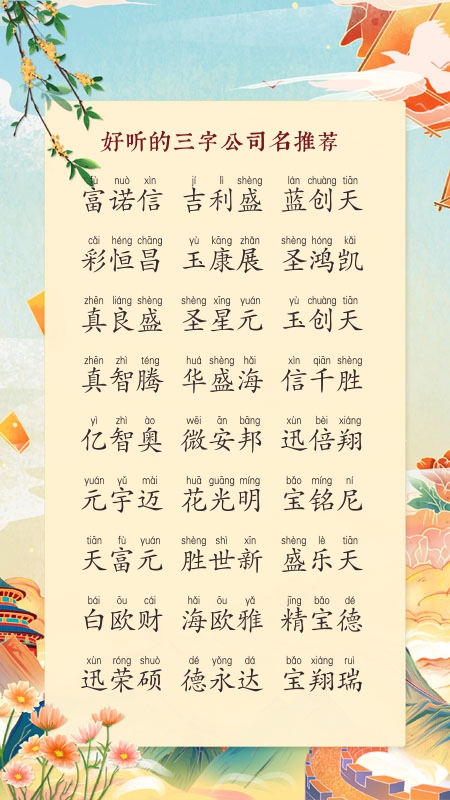 好听的三字公司名推荐
fù nuò xìn jí lì shèng lán chuàng tiān
富诺信 吉利盛 蓝创天
cǎi héng chāng yù kāng zhǎn shèng hóng kǎi
彩恒昌 玉康展 圣鸿凯
zhēn liáng shèng shèng xīng yuán yù chuàng tiān
真良盛 圣星元 玉创天
zhēn zhì téng huá shèng hǎi xìn qiān shèng
真智腾 华盛海 信千胜
yì zhì ào wēi ān bāng xùn bèi xiáng
亿智奥 微安邦 迅倍翔
yuán yǔ mài huā guāng míng bǎo míng ní
元宇迈 花光明 宝铭尼
tiān fù yuán shèng shì xīn shèng lè tiān
天富元 胜世新 盛乐天
bái ōu cái hǎi ōu yǎ jīng bǎo dé
白欧财 海欧雅 精宝德
xùn róng shuò dé yǒng dá bǎo xiáng ruì
迅荣硕 德永达 宝翔瑞